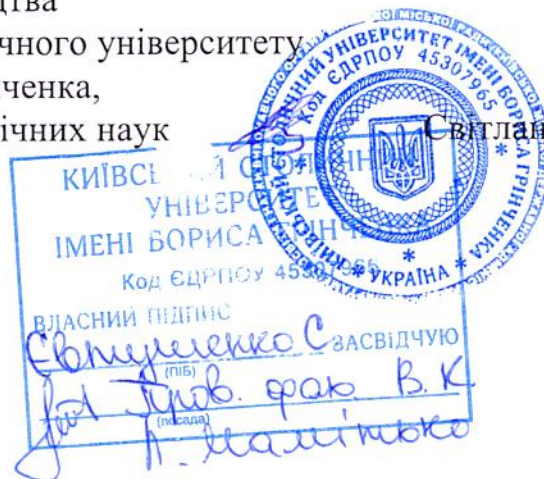 цтва
чного університету
нченка,
ічних наук
Світлан
КИЇВСЬКИЙ СТОЛИЧНИЙ УНІВЕРСИТЕТ ІМЕНІ БОРИСА ГРІНЧЕНКА * УКРАЇНА *
Код ЄДРПОУ 45307965
КИЇВСЬКИЙ СТОЛИЧНИЙ
УНІВЕРСИТЕТ
ІМЕНІ БОРИСА ГРІНЧЕНКА
Код ЄДРПОУ 45307965
ВЛАСНИЙ ПІДПИС
Євтушенко С ЗАСВІДЧУЮ
(ПІБ)
Пров. фах. В.К.
(посада)